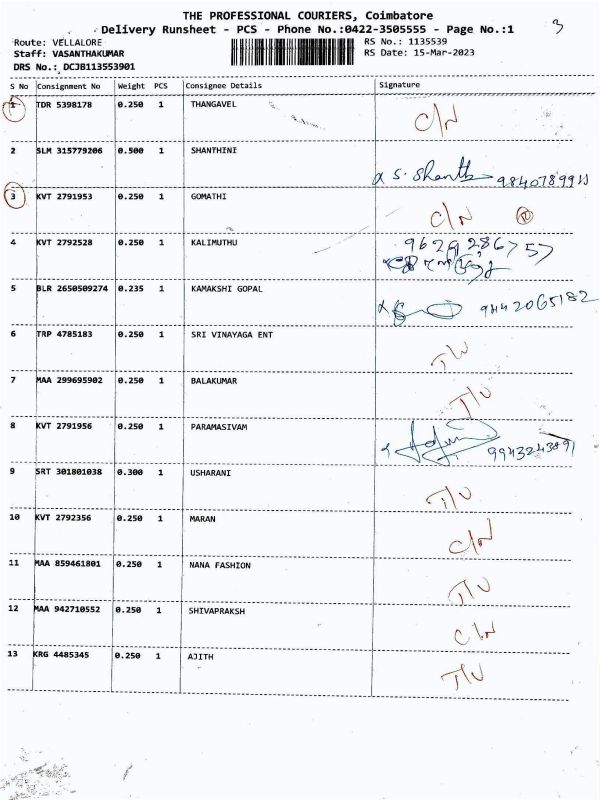 THE PROFESSIONAL COURIERS, Coimbatore
3
Delivery Runsheet - PCS - Phone No.:0422-3505555 - Page No.:1
Route: VELLALORE
RS No.: 1135539
Staff: VASANTHAKUMAR
RS Date: 15-Mar-2023
DRS No.: DCJB113553901
S No Consignment No Weight PCS Consignee Details Signature
1 TDR 5398178 0.250 1 THANGAVEL C/N
2 SLM 315779206 0.500 1 SHANTHINI
S. Shanth
3 KVT 2791953 0.250 1 GOMATHI C/N R
4 KVT 2792528 0.250 1 KALIMUTHU 9629286757
5 BLR 2650509274 0.235 1 KAMAKSHI GOPAL 9442065182
6 TRP 4785183 0.250 1 SRI VINAYAGA ENT
7 MAA 299695902 0.250 1 BALAKUMAR
8 KVT 2791956 0.250 1 PARAMASIVAM
9 SRT 301801038 0.300 1 USHARANI
10 KVT 2792356 0.250 1 MARAN C/N
11 MAA 859461801 0.250 1 NANA FASHION
12 MAA 942710552 0.250 1 SHIVAPRAKSH C/N
13 KRG 4485345 0.250 1 AJITH